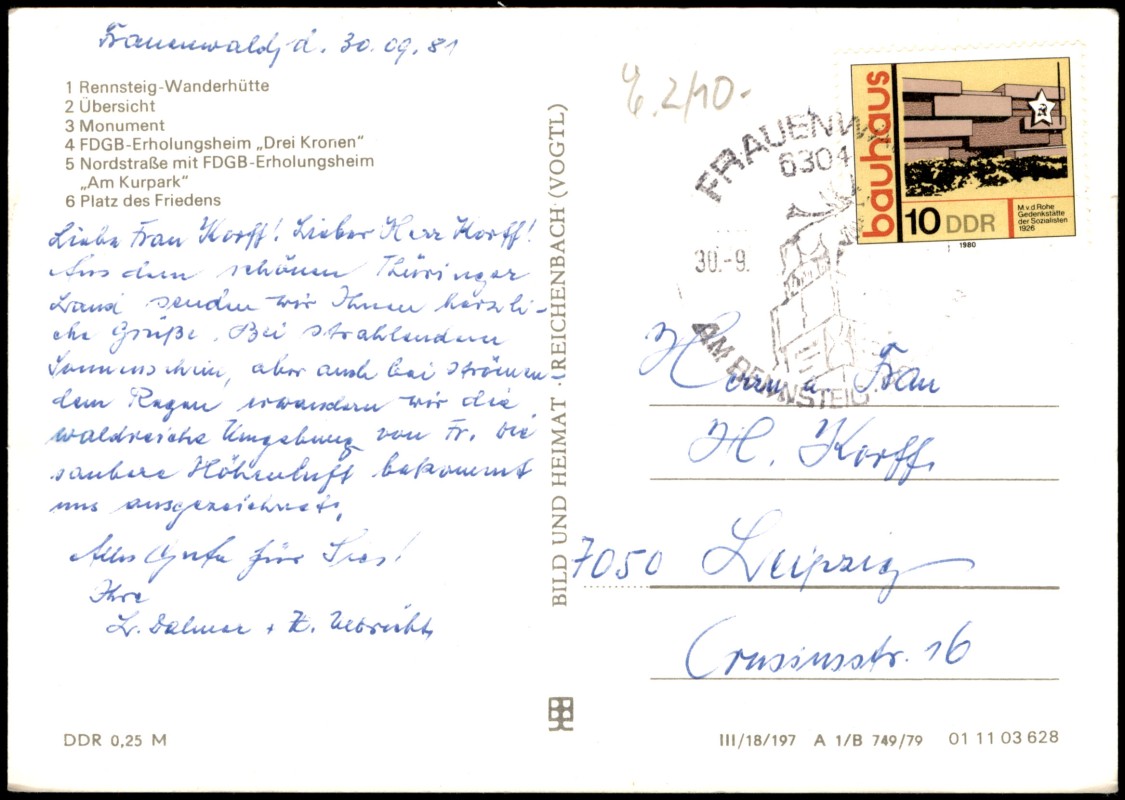 Frauenwald, d. 30.09.81
1 Rennsteig-Wanderhütte
2 Übersicht
3 Monument
4 FDGB-Erholungsheim „Drei Kronen“
5 Nordstraße mit FDGB-Erholungsheim
„Am Kurpark“
6 Platz des Friedens
Liebe Frau Korff! Lieber Herr Korff!
Aus dem schönen Thüringer
Land senden wir Ihnen herzli-
che Grüße. Bei strahlendem
Sonnenschein, aber auch bei strömen-
dem Regen erwandern wir die
waldreiche Umgebung von Fr. Die
saubere Höhenluft bekommt
uns ausgezeichnet.
Alles Gute für Sie!
Ihre
BILD UND HEIMAT · REICHENBACH (VOGTL)
2/10.-
FRAUENW
6304
30.-9.
AM RENNSTEIG
bauhaus
10 DDR
M.v.d.Rohe
Gedenkstätte
der Sozialisten
1926
1980
Herrn u. Frau
H. Korff
7050 Leipzig
Crusiusstr. 16
DDR 0,25 M
III/18/197 A 1/B 749/79 01 11 03 628